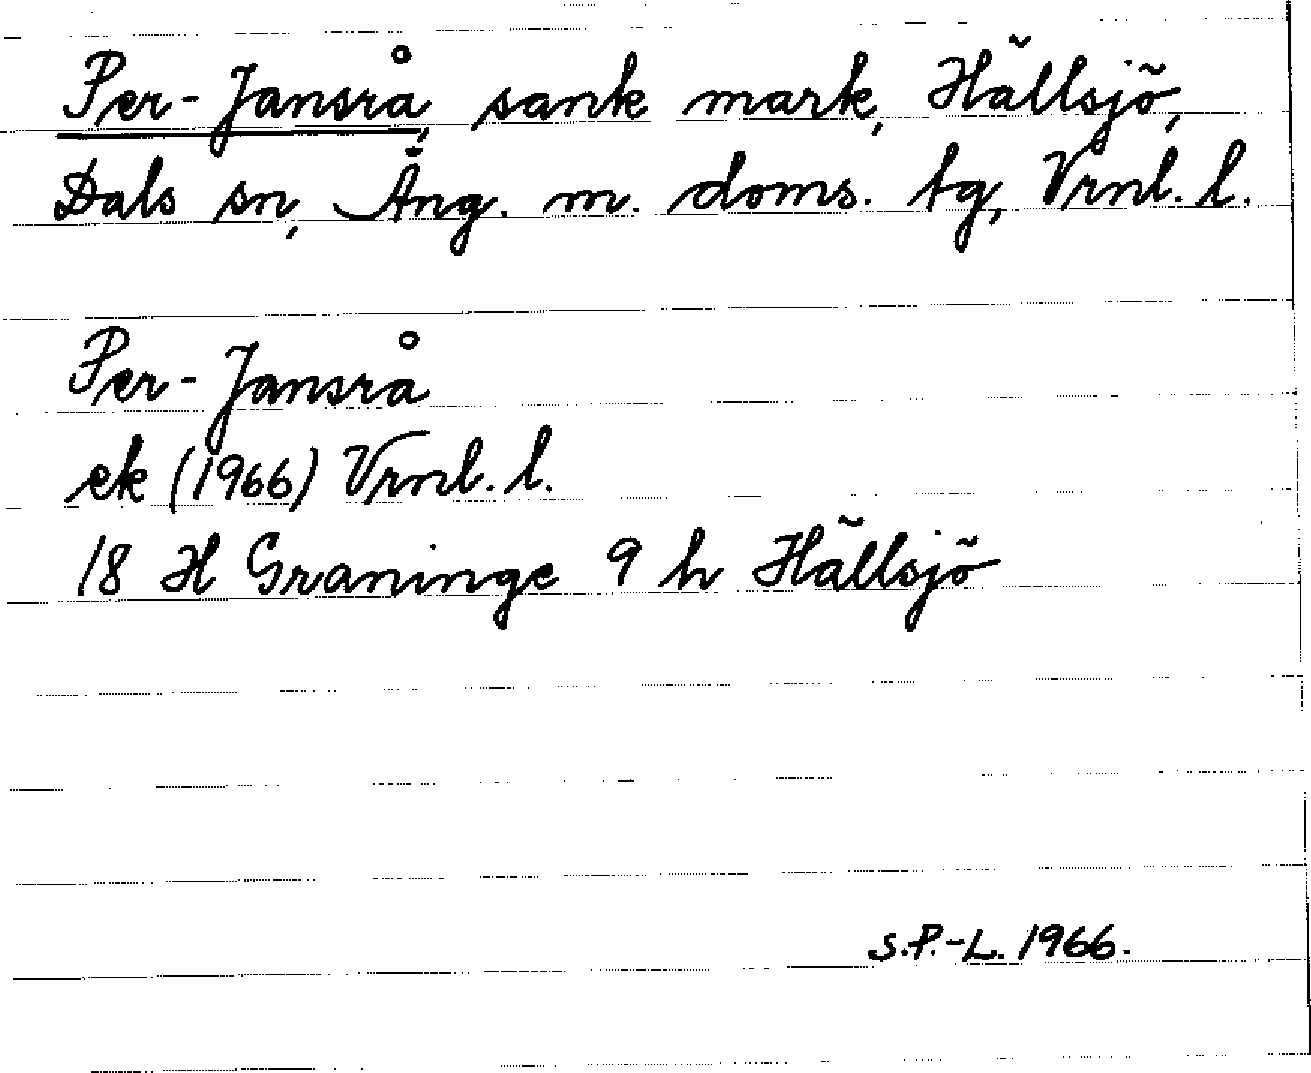 Per-Jansrå, sank mark, Hällsjö,
Dals sn, Ång. m. doms. tg, Vrnl. l.
Per-Jansrå
ek (1966) Vrnl. l.
18 H Graninge 9 h Hällsjö
S.P.-L. 1966.